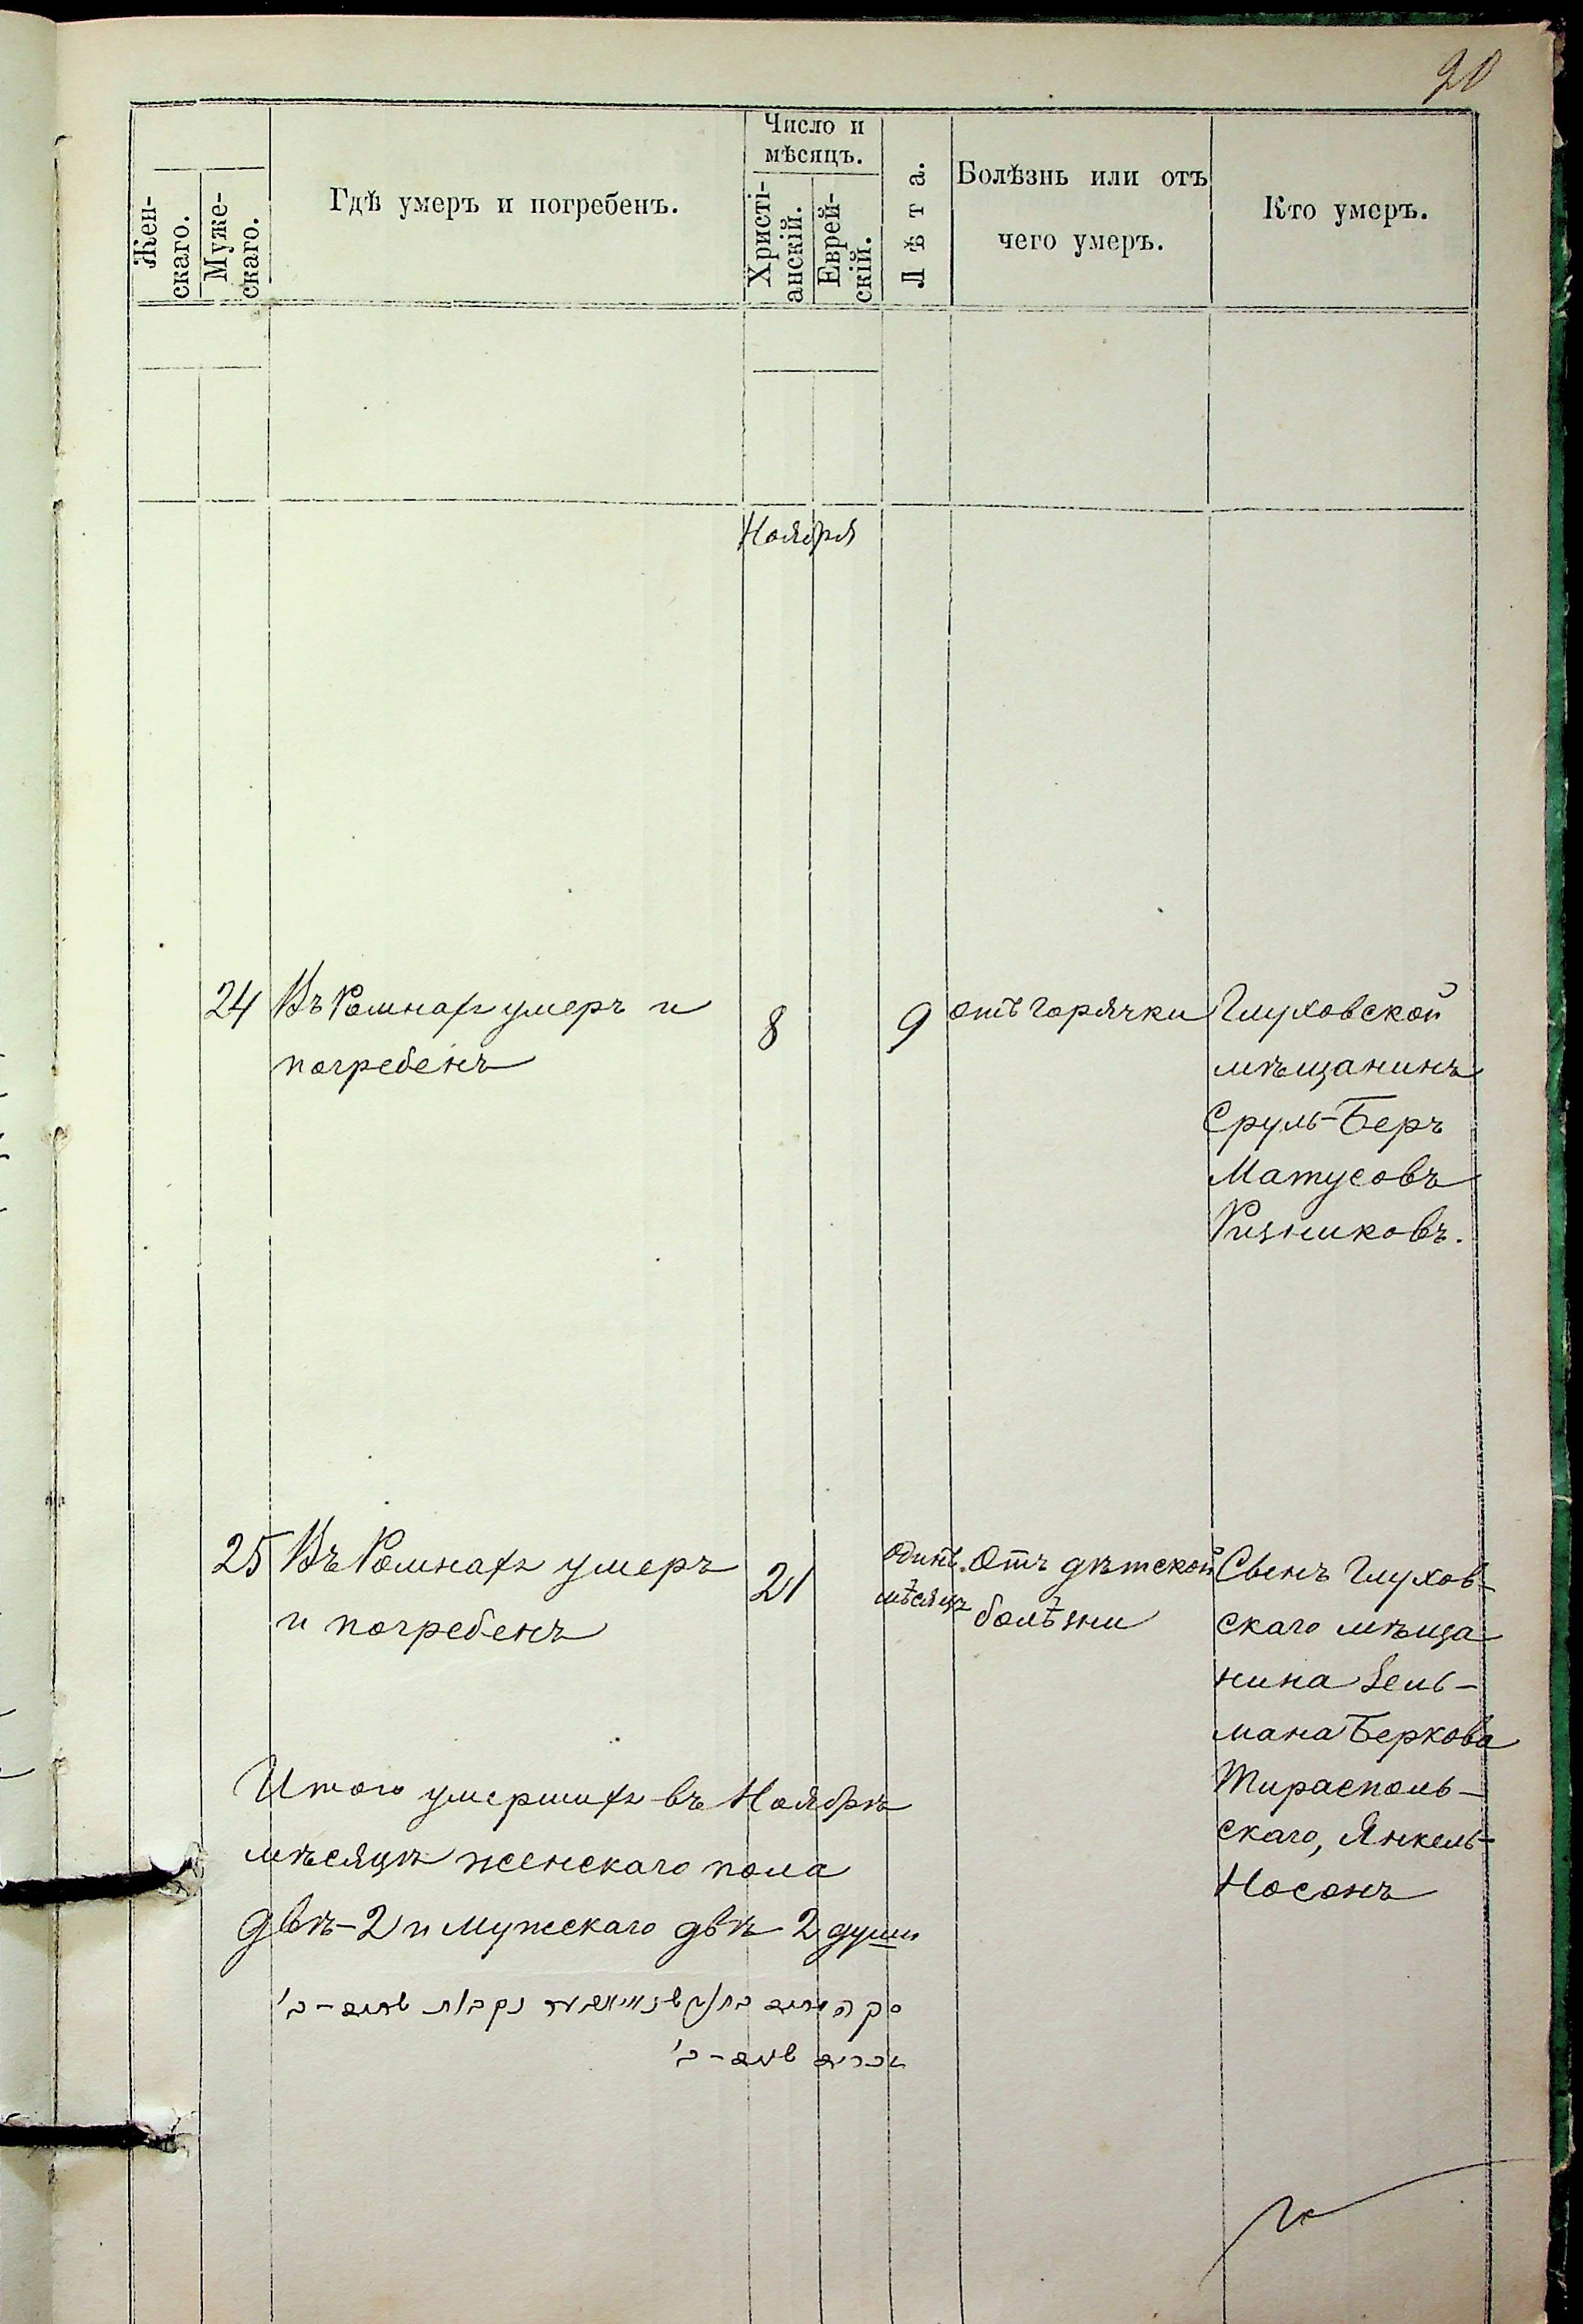 20
Жен-
скаго.
Муже-
скаго.
Гдѣ умеръ и погребенъ.
Число и
мѣсяцъ.
Христі-
анскій.
Еврей-
скій.
Лѣта.
Болѣзнь или отъ
чего умеръ.
Кто умеръ.
Ноября
24
Въ Ромнахъ умеръ и
погребенъ
8
9
отъ горячки
Глуховской
мѣщанинъ
Сруль-Беръ
Матусовъ
Ризниковъ.
25
Въ Ромнахъ умеръ
и погребенъ
21
одинъ
мѣсяцъ
Отъ дѣтской
болѣзни
Сынъ Глухов-
скаго мѣща
нина Зель-
мана Беркова
Тирасполь-
скаго, Янкель-
Носонъ
Итого умершихъ въ Ноябрѣ
мѣсяцѣ женскаго пола
двѣ-2 и мужскаго двѣ 2 души